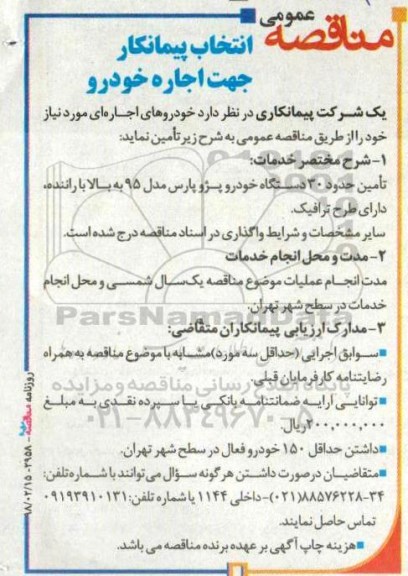 مناقصه عمومی
انتخاب پیمانکار
جهت اجاره خودرو
یک شرکت پیمانکاری در نظر دارد خودروهای اجاره‌ای مورد نیاز
خود را از طریق مناقصه عمومی به شرح زیر تأمین نماید:
۱- شرح مختصر خدمات:
تأمین حدود ۳۰ دستگاه خودرو پژو پارس مدل ۹۵ به بالا با راننده،
دارای طرح ترافیک.
سایر مشخصات و شرایط واگذاری در اسناد مناقصه درج شده است.
۲- مدت و محل انجام خدمات
مدت انجام عملیات موضوع مناقصه یک سال شمسی و محل انجام
خدمات در سطح شهر تهران.
ParsNamadData
۳- مدارک ارزیابی پیمانکاران متقاضی:
■ سوابق اجرایی (حداقل سه مورد) مشابه با موضوع مناقصه به همراه
رضایتنامه کارفرمایان قبلی.
پایگاه اطلاع رسانی مناقصه و مزایده
■ توانایی ارایه ضمانتنامه بانکی یا سپرده نقدی به مبلغ
۲۰۰,۰۰۰,۰۰۰ ریال.
۰۲۱-۸۸۳۴۹۶۷۰-۵
■ داشتن حداقل ۱۵۰ خودرو فعال در سطح شهر تهران.
■ متقاضیان در صورت داشتن هر گونه سؤال می‌توانند با شماره تلفن:
۳۴-۸۸۵۷۶۲۲۸(۰۲۱)- داخلی ۱۱۴۴ یا شماره تلفن: ۰۹۱۹۳۹۱۰۱۳۱
تماس حاصل نمایند.
■ هزینه چاپ آگهی بر عهده برنده مناقصه می باشد.
روزنامه مناقصه - ۲۹۵۸ - ۹۸/۰۲/۱۵